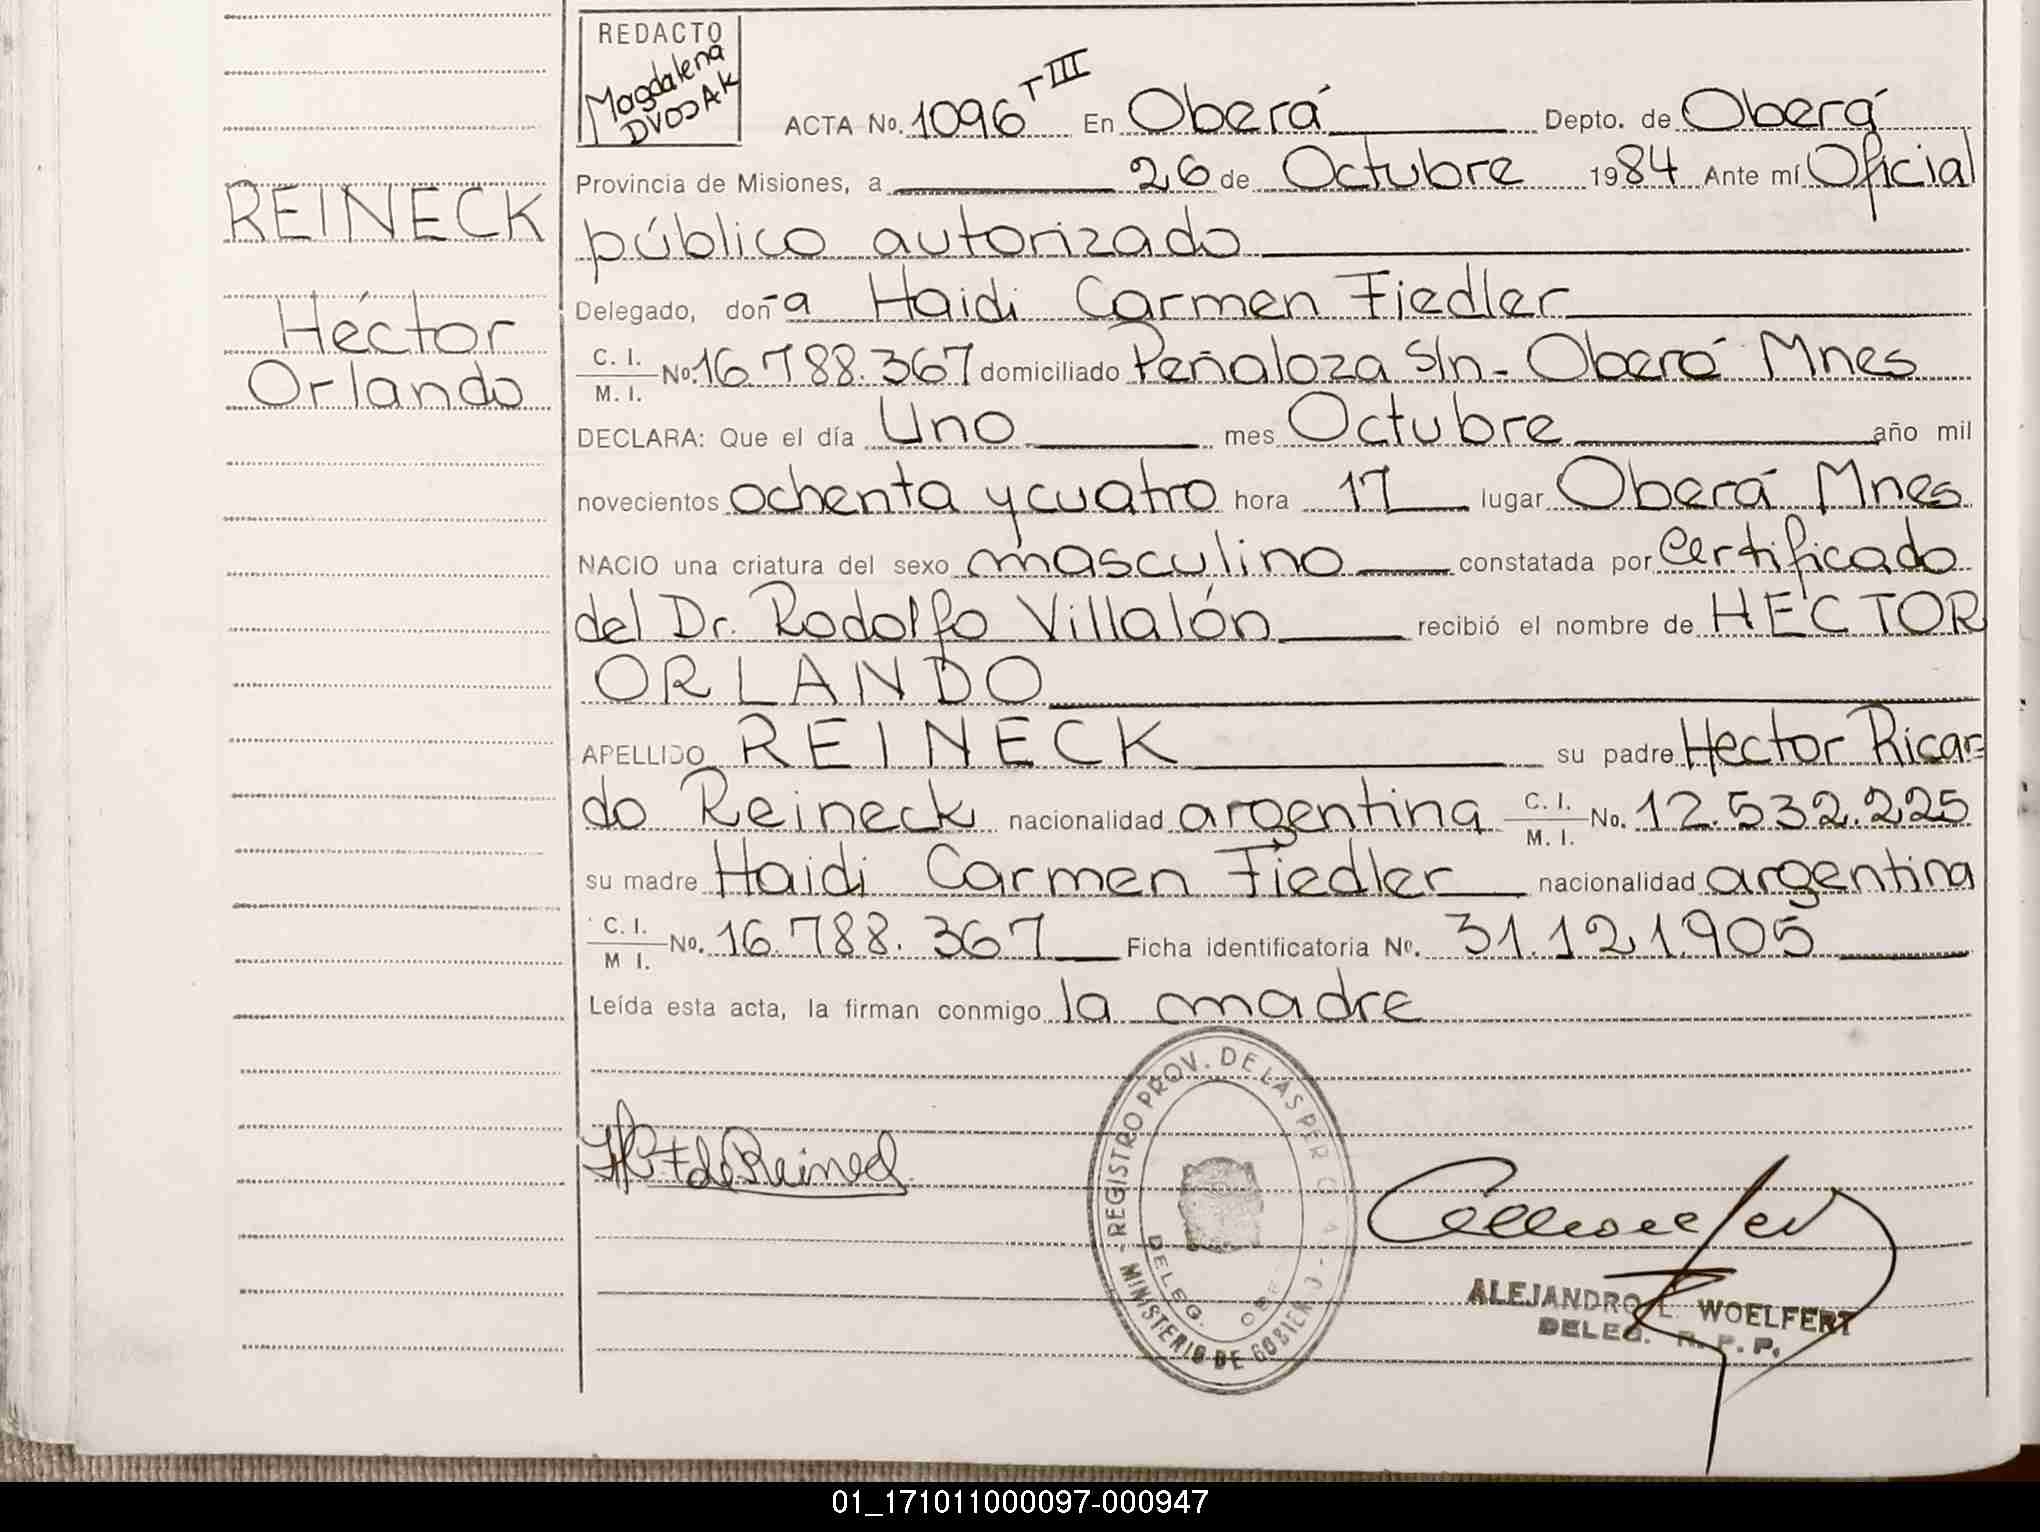 REDACTO
Magdalena
DVOJAK
ACTA No. 1096 T III En Oberá Depto. de Oberá
Provincia de Misiones, a 26 de Octubre 1984 Ante mí Oficial
público autorizado
Delegado, don-a Haidi Carmen Fiedler
C. I.
M. I. No. 16.788.367 domiciliado Peñaloza S/n - Oberá Mnes
DECLARA: Que el día Uno mes Octubre año mil
novecientos ochenta y cuatro hora 17 lugar Oberá Mnes
NACIO una criatura del sexo masculino constatada por Certificado
del Dr. Rodolfo Villalón recibió el nombre de HÉCTOR
ORLANDO
APELLIDO REINECK su padre Hector Ricar=
do Reineck nacionalidad argentina C. I. M. I. No. 12.532.225
su madre Haidi Carmen Fiedler nacionalidad argentina
C. I.
M I. No. 16.788.367 Ficha identificatoria No. 31.121.905
Leída esta acta, la firman conmigo la madre
REINECK
Héctor
Orlando
F de Reineck
REGISTRO PROV. DE LAS PER
MINISTERIO DE GOBIERN
DELEG. OBE
ALEJANDRO L. WOELFERT
DELEG. R. P. P.
01_171011000097-000947